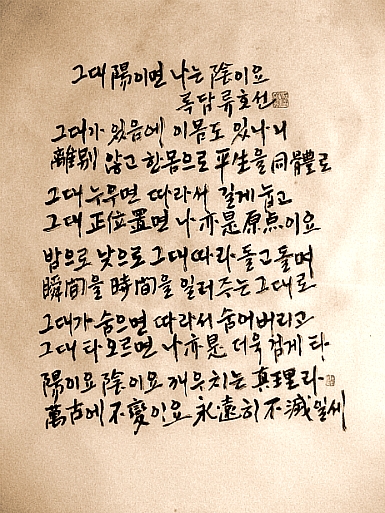 그대 陽이면 나는 陰이요
록담 류호선
그대가 있음에 이몸도 있나니
離別 않고 한몸으로 平生을 同體로
그대 누우면 따라서 길게 눕고
그대 正位置면 나 亦是 原点이요
밤으로 낮으로 그대 따라 돌고돌며
瞬間을 時間을 일러주는 그대로
그대가 숨으면 따라서 숨어버리고
그대 타오르면 나 亦是 더욱 검게 타
陽이요 陰이요 깨우치는 真理라
萬古에 不變이요 永遠히 不滅일세